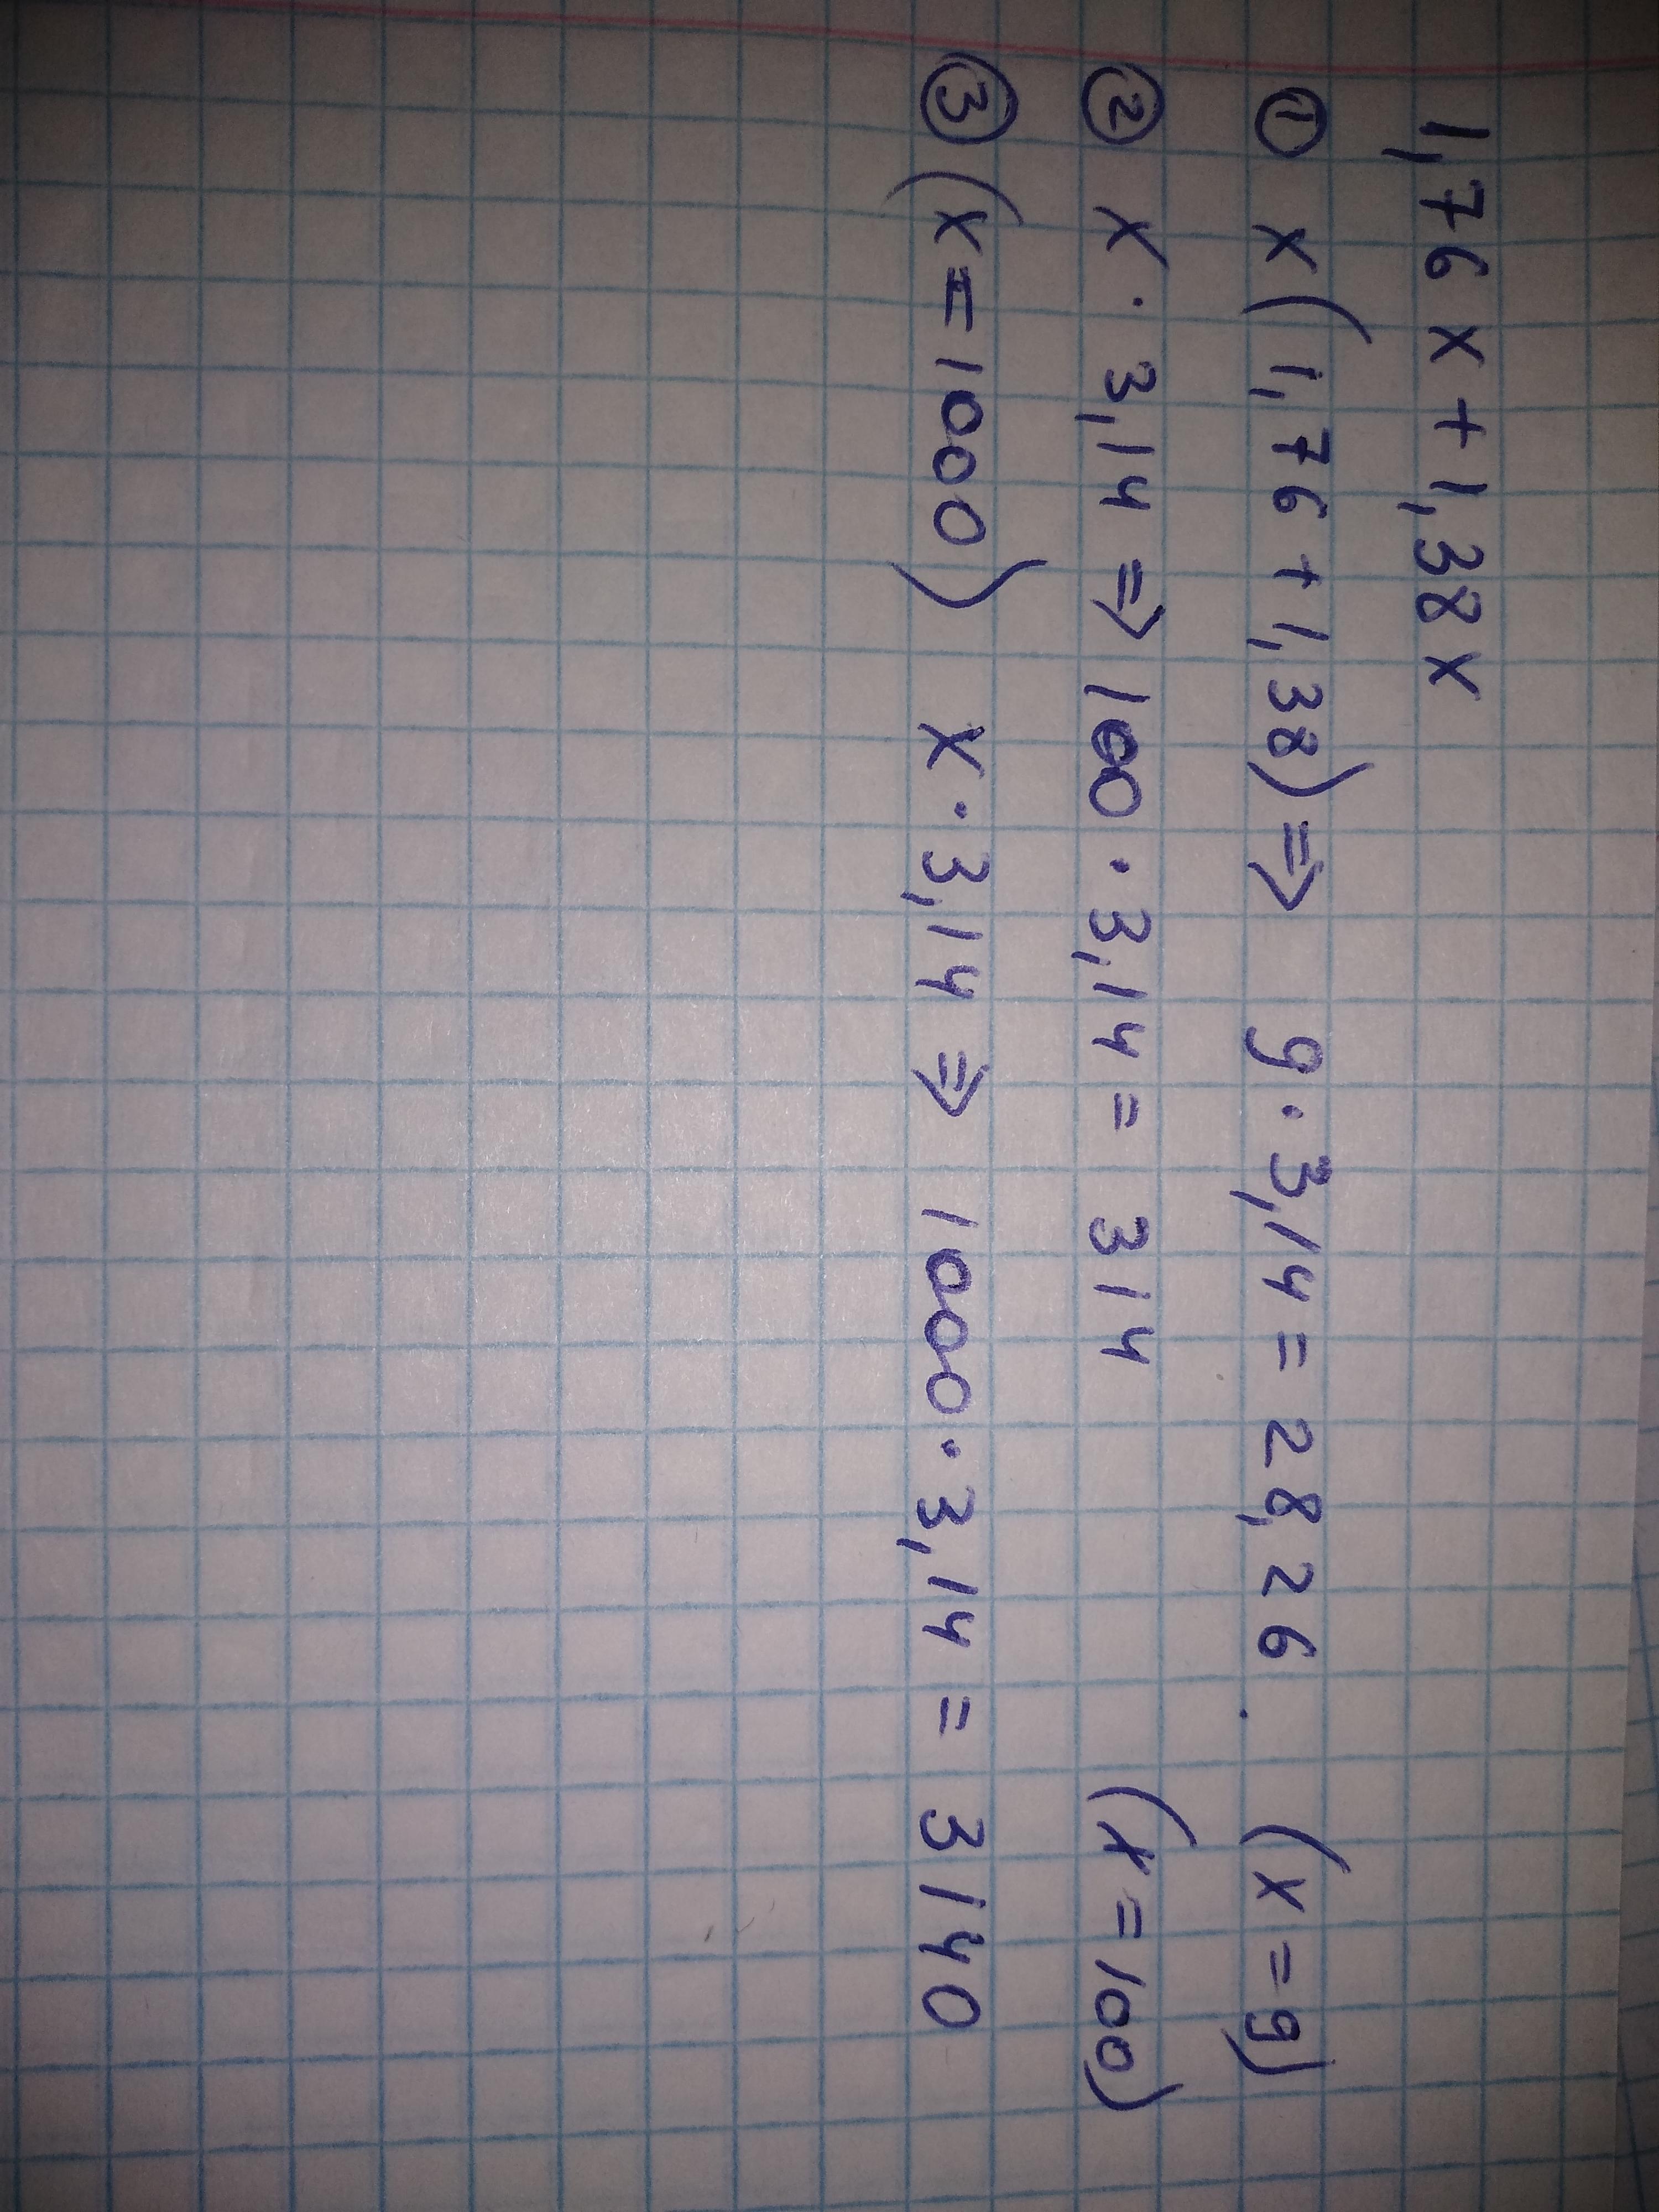 1,76 x + 1,38 x
① x (1,76 + 1,38) => 9 · 3,14 = 28,26. (x = 9)
② x · 3,14 => 100 · 3,14 = 314 (x = 100)
③ (x = 1000) x · 3,14 => 1000 · 3,14 = 3140